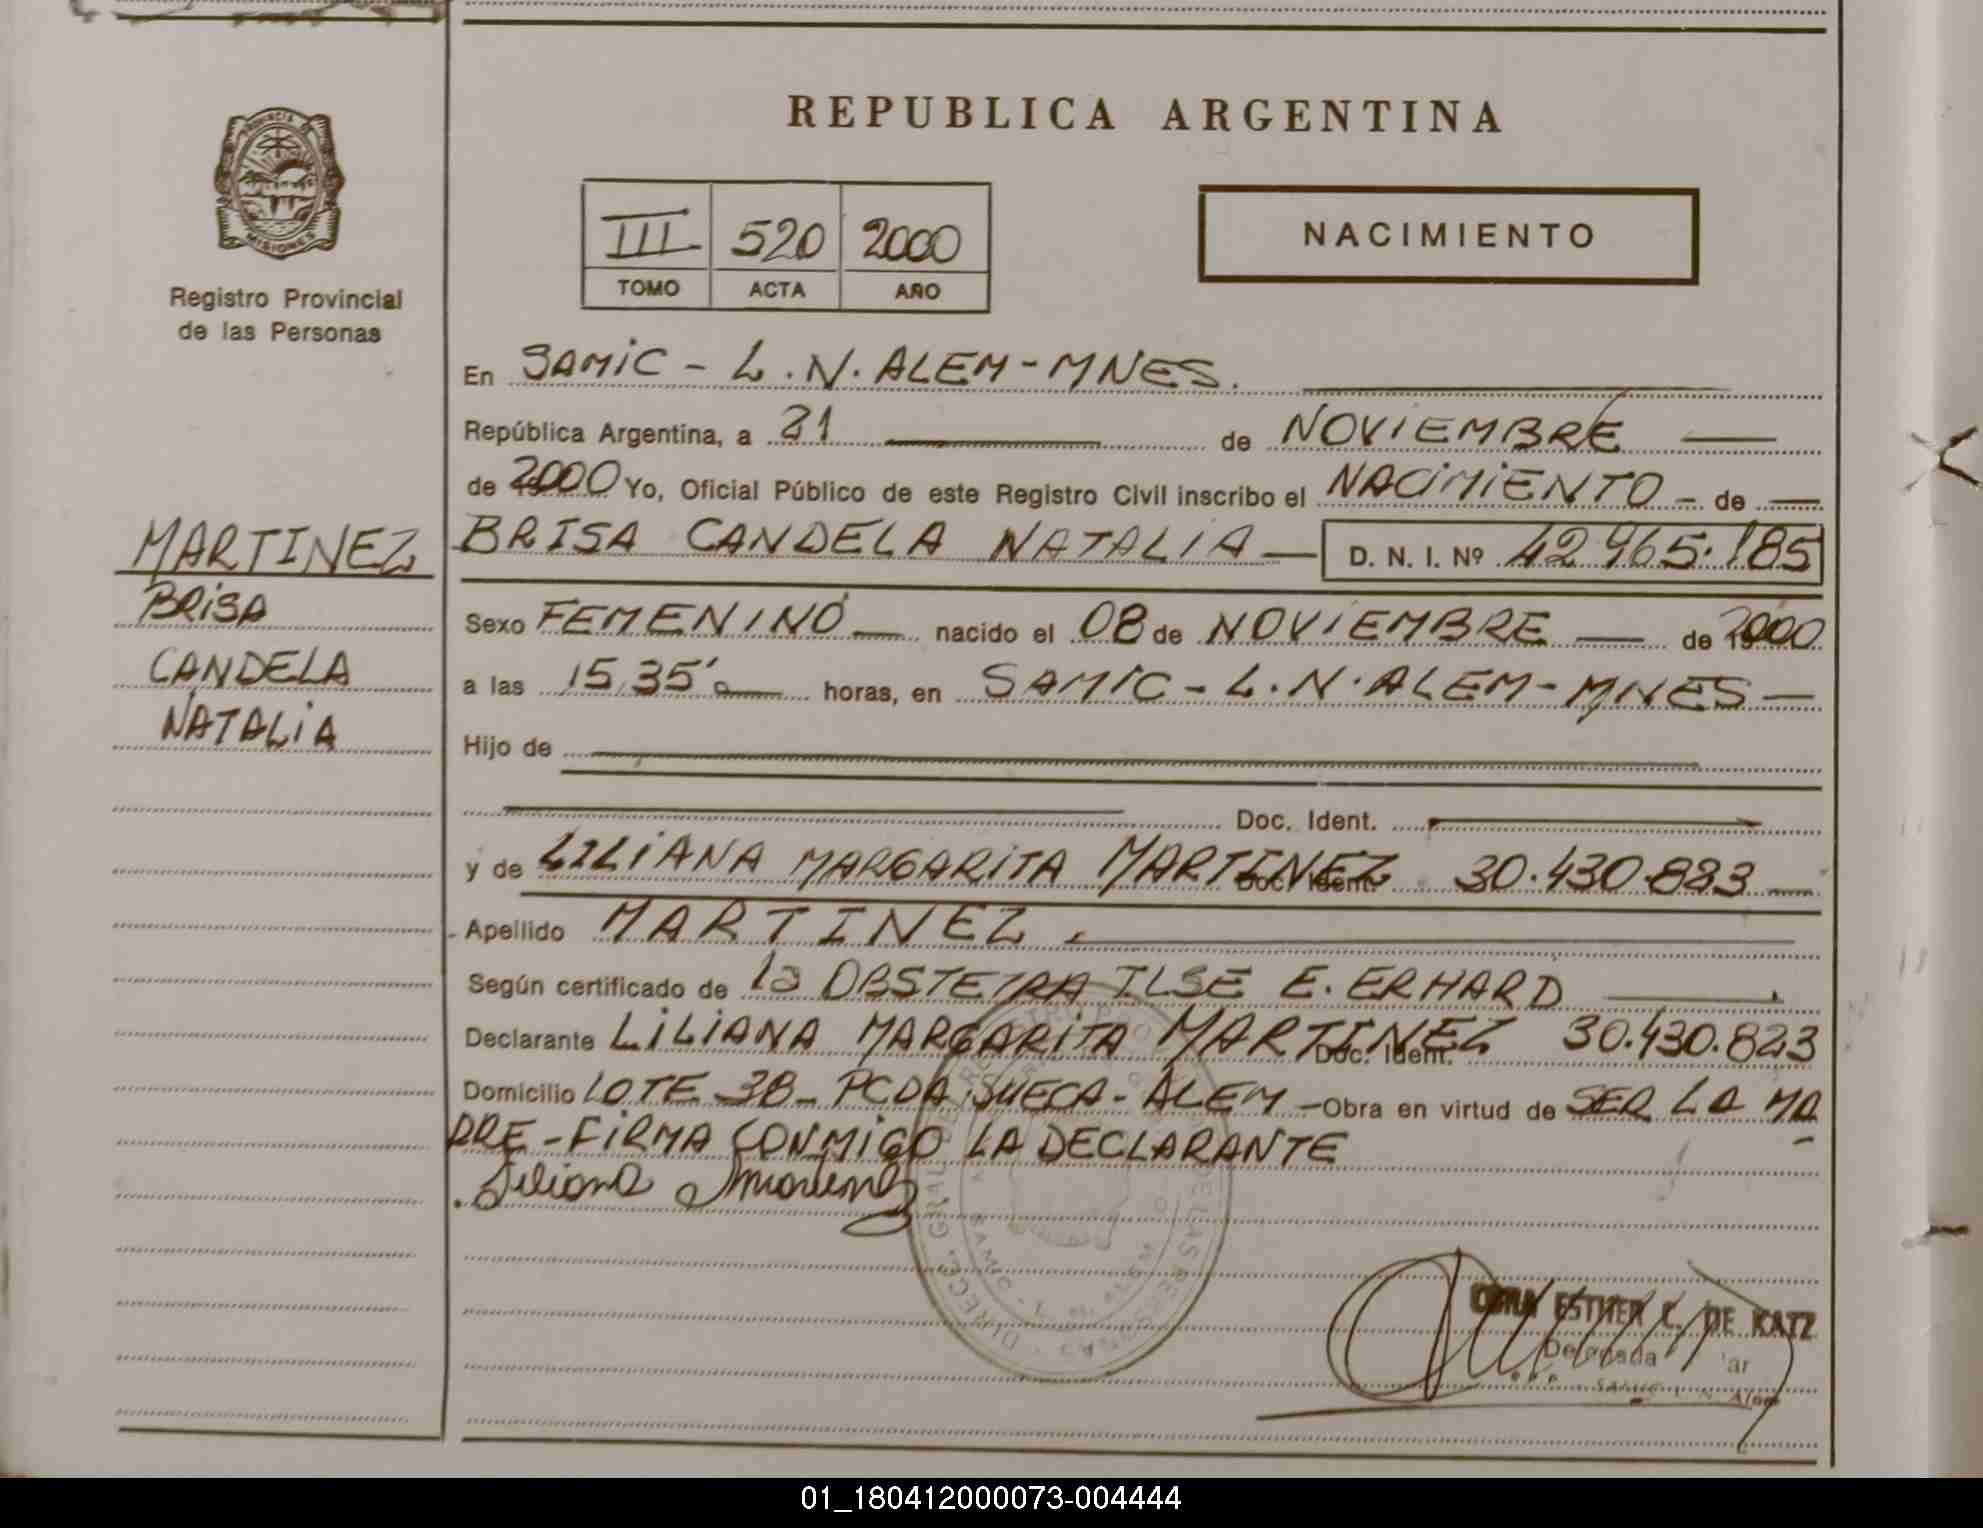 REPUBLICA ARGENTINA
PROVINCIA DE
MISIONES
Registro Provincial
de las Personas
III 520 2000
TOMO ACTA AÑO
NACIMIENTO
En SAMIC - L.N. ALEM - MNES.
República Argentina, a 21 de NOVIEMBRE
de 2000 Yo, Oficial Público de este Registro Civil inscribo el NACIMIENTO - de
BRISA CANDELA NATALIA - D. N. I. Nº 42.965.185
MARTINEZ
BRISA
CANDELA
NATALIA
Sexo FEMENINO nacido el 08 de NOVIEMBRE de 2000
a las 15,35' horas, en SAMIC - L.N. ALEM - MNES -
Hijo de
Doc. Ident.
y de LILIANA MARGARITA MARTINEZ Doc. Ident. 30.430.823
Apellido MARTINEZ.
Según certificado de la OBSTETRA ILSE E. ERHARD
Declarante LILIANA MARGARITA MARTINEZ Doc. Ident. 30.430.823
Domicilio LOTE 38 - PCDA SUECA - ALEM - Obra en virtud de SER LA MA
DRE - FIRMA CONMIGO LA DECLARANTE
Liliana Martinez
ESTHER C. DE KATZ
Delegada
SAMIC L. N. Alem
01_180412000073-004444